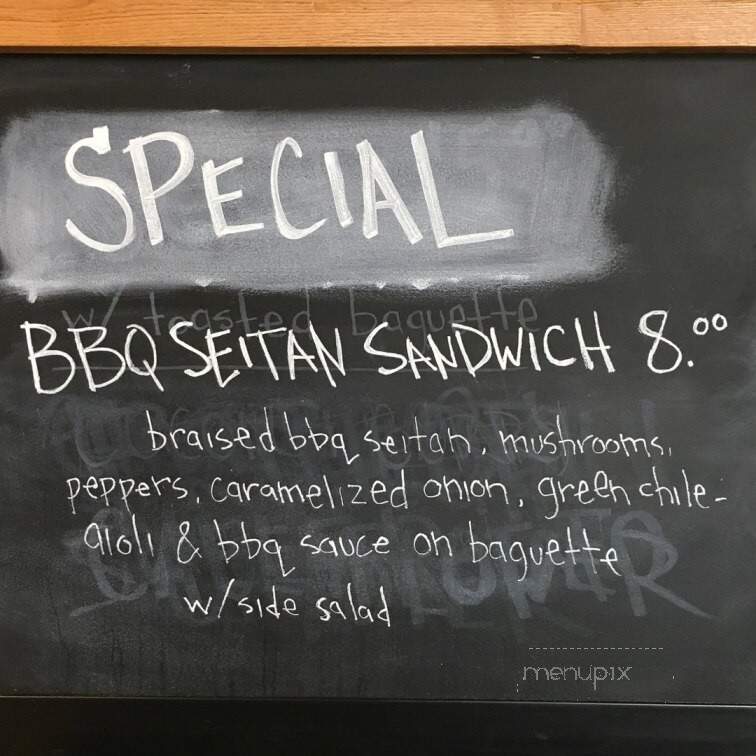 SPECIAL
w/ toasted baguette
BBQ SEITAN SANDWICH 8.00
braised bbq seitan, mushrooms,
peppers, caramelized onion, green chile-
aioli & bbq sauce on baguette
w/side salad
menupix